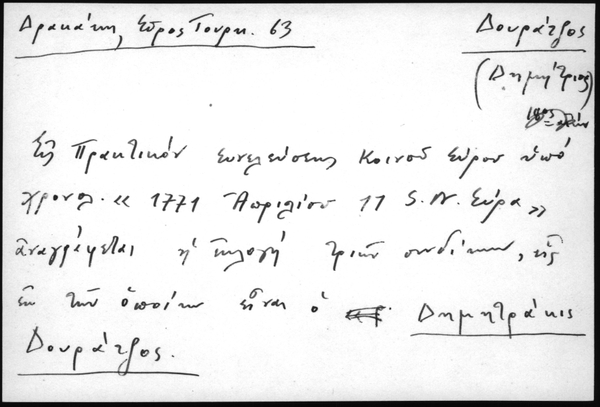 Δρακάκη, Σῦρος Τουρκ. 63
Δουράτζος
(Δημήτριος)
Εἰς Πρακτικὸν συνελεύσεως Κοινοῦ Σύρου ὑπὸ
χρονολ. «1771 Ἀπριλίου 11 S.N. Σύρα»
ἀναγράφεται ἡ ἐκλογὴ τριῶν συνδίκων, εἷς
ἐκ τῶν ὁποίων εἶναι ὁ Δημητράκις
Δουράτζος.